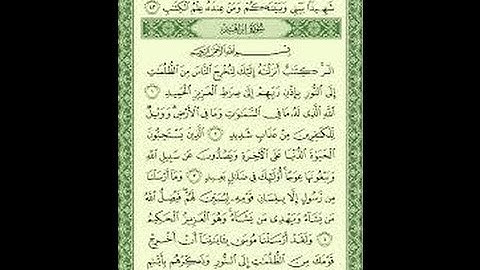 شَهِيدًا بَيْنِي وَبَيْنَكُمْ وَمَنْ عِندَهُ عِلْمُ الْكِتَابِ ٤٣
سُورَةُ إِبْرَاهِيمَ
بِسْمِ اللَّهِ الرَّحْمَٰنِ الرَّحِيمِ
الٓر كِتَابٌ أَنزَلْنَاهُ إِلَيْكَ لِتُخْرِجَ النَّاسَ مِنَ الظُّلُمَاتِ
إِلَى النُّورِ بِإِذْنِ رَبِّهِمْ إِلَىٰ صِرَاطِ الْعَزِيزِ الْحَمِيدِ ١
اللَّهِ الَّذِي لَهُ مَا فِي السَّمَاوَاتِ وَمَا فِي الْأَرْضِ وَوَيْلٌ
لِّلْكَافِرِينَ مِنْ عَذَابٍ شَدِيدٍ ٢ الَّذِينَ يَسْتَحِبُّونَ
الْحَيَاةَ الدُّنْيَا عَلَى الْآخِرَةِ وَيَصُدُّونَ عَن سَبِيلِ اللَّهِ
وَيَبْغُونَهَا عِوَجًا أُولَٰئِكَ فِي ضَلَالٍ بَعِيدٍ ٣ وَمَا أَرْسَلْنَا
مِن رَّسُولٍ إِلَّا بِلِسَانِ قَوْمِهِ لِيُبَيِّنَ لَهُمْ فَيُضِلُّ اللَّهُ
مَن يَشَاءُ وَيَهْدِي مَن يَشَاءُ وَهُوَ الْعَزِيزُ الْحَكِيمُ
٤ وَلَقَدْ أَرْسَلْنَا مُوسَىٰ بِآيَاتِنَا أَنْ أَخْرِجْ
قَوْمَكَ مِنَ الظُّلُمَاتِ إِلَى النُّورِ وَذَكِّرْهُم بِأَيَّامِ